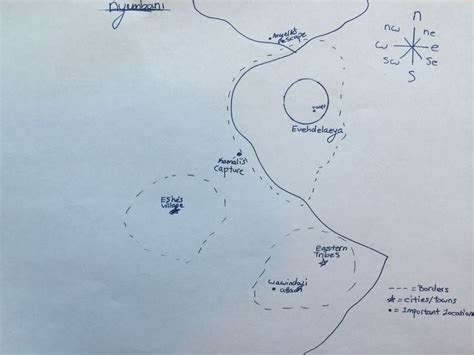 nyumbani
n
nw
ne
w
e
sw
Se
S
escape
Evehdelaeya
Kamalis'
capture
Eshe's
village
Eastern
Tribes
wawindaji
attack
--- = Borders
= cities/towns
• = Important Locations